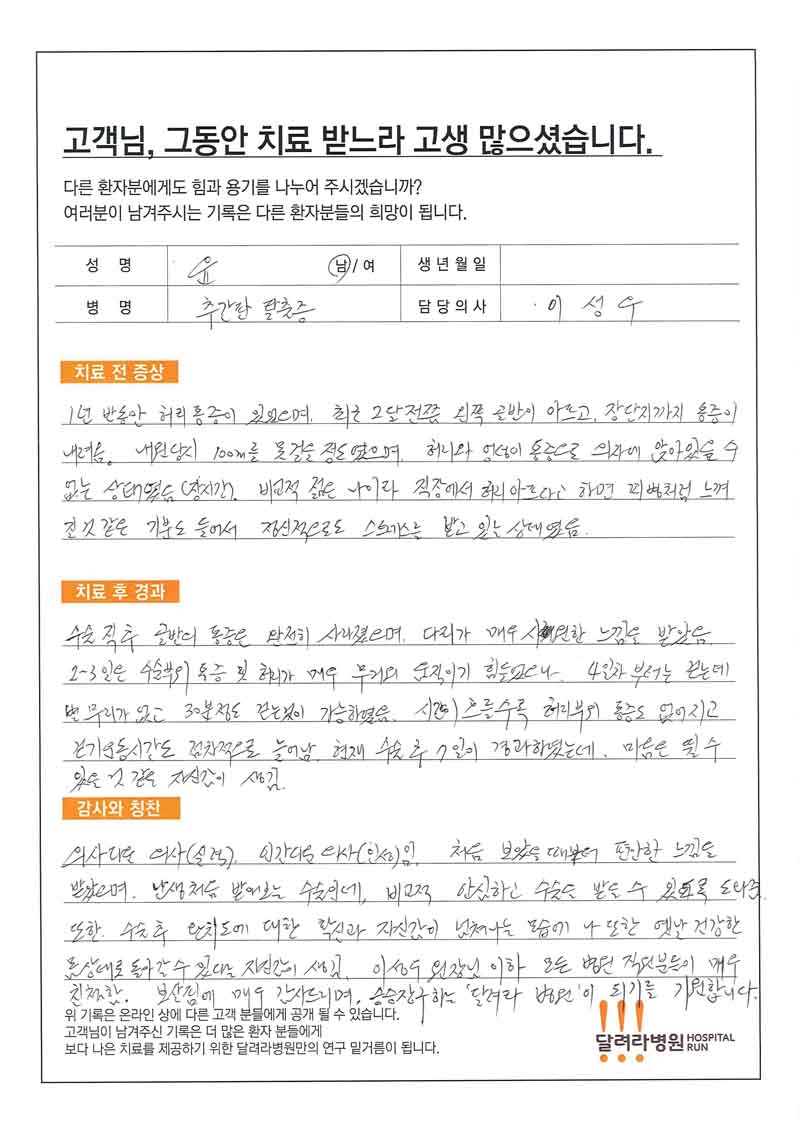 고객님, 그동안 치료 받느라 고생 많으셨습니다.
다른 환자분에게도 힘과 용기를 나누어 주시겠습니까?
여러분이 남겨주시는 기록은 다른 환자분들의 희망이 됩니다.
성 명 윤 남/여 생년월일
병 명 추간판 탈출증 담당의사 이성우
치료 전 증상
1년 반동안 허리통증이 있었으며, 최근 2달전쯤 왼쪽 골반이 아프고, 장단지까지 통증이
내려옴. 내원당시 100m를 못걸을 정도였으며, 허리와 엉덩이 통증으로 의자에 앉아있을 수
없는 상태였음(장시간). 비교적 젊은 나이라 직장에서 허리아프다고 하면 꾀병처럼 느껴
진것 같은 기분도 들어서 정신적으로도 스트레스를 받고 있는 상태였음.
치료 후 경과
수술 직후 골반의 통증은 완전히 사라졌으며, 다리가 매우 시원한 느낌을 받았음.
2~3일은 수술부위 통증 및 허리가 매우 무거워 움직이기 힘들었으나, 4일차 부터는 걷는데
별 무리가 없고 30분정도 걷는것이 가능하였음. 시간이 흐를수록 허리부위 통증도 없어지고
걷기운동시간도 점차적으로 늘어남. 현재 수술 후 7일이 경과하였는데, 마음은 뛸 수
있을 것 같은 자신감이 생김.
감사와 칭찬
의사다운 의사(실력), 인간다운 의사(인성)임. 처음 보았을때부터 편안한 느낌을
받았으며, 난생처음 받아보는 수술인데, 비교적 안심하고 수술을 받을 수 있도록 도와줌.
또한, 수술 후 완치도에 대한 확신과 자신감이 넘쳐나는 모습에 나 또한 옛날 건강한
몸상태로 돌아갈 수 있다는 자신감이 생김. 이성우 원장님 이하 모든 병원 직원분들이 매우
친절함. 보살핌에 매우 감사드리며, 승승장구하는 '달려라 병원'이 되기를 기원합니다.
위 기록은 온라인 상에 다른 고객 분들에게 공개 될 수 있습니다.
고객님이 남겨주신 기록은 더 많은 환자 분들에게
보다 나은 치료를 제공하기 위한 달려라병원만의 연구 밑거름이 됩니다.
달려라병원 HOSPITAL RUN